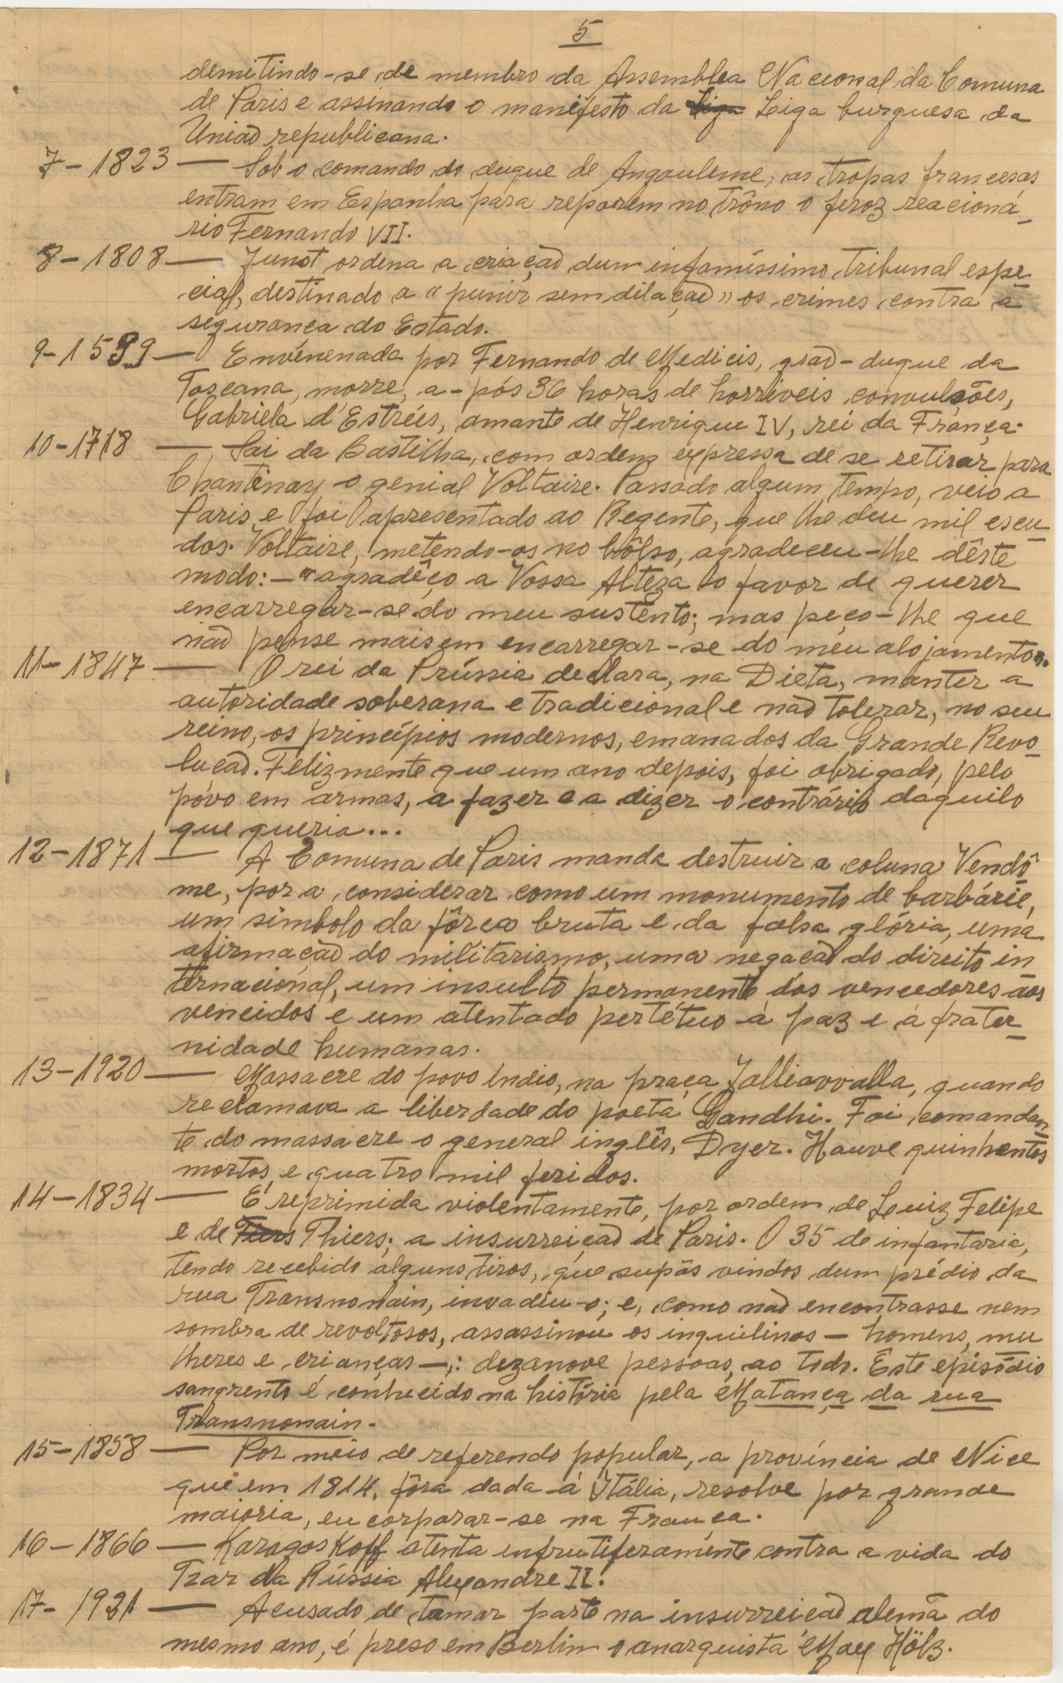 5
demitindo-se de membro da Assemblea Nacional da Comuna
de Paris e assinando o manifesto da Liga Liga burguesa da
União republicana.
7-1823 — Sob o comando do duque de Angouleme, as tropas francesas
entram em Espanha para reporem no trôno o feroz reacioná-
rio Fernando VII.
8-1808 — Junot ordena a criação dum infamíssimo tribunal espe-
cial, destinado a "punir sem dilação" os crimes contra a
segurança do Estado.
9-1599 — Envenenada por Fernando de Medicis, grão-duque da
Toscana, morre, a-pós 36 horas de horríveis convulsões,
Gabriela d'Estréis, amante de Henrique IV, rei da França.
10-1718 — Sai da Bastilha, com ordem expressa de se retirar para
Chantinay o genial Voltaire. Passado algum tempo, veio a
Paris e foi apresentado ao Regente, que lhe deu mil escu-
dos. Voltaire, metendo-os no bôlso, agradeceu-lhe dêste
modo: — "agradêço a Vossa Alteza o favor de querer
encarregar-se do meu sustento; mas peço-lhe que
não pense mais em encarregar-se do meu alojamento".
11-1847 — O rei da Prússia declara, na Dieta, manter a
autoridade soberana e tradicional e não tolerar, no seu
reino, os princípios modernos, emanados da Grande Revo-
lução. Felizmente que um ano depois, foi obrigado, pelo
povo em armas, a fazer e a dizer o contrário daquilo
que queria...
12-1871 — A Comuna de Paris manda destruir a coluna Vendô-
me, por a considerar como um monumento de barbárie,
um símbolo da fôrça bruta e da falsa glória, uma
afirmação do militarismo, uma negação do direito in
ternacional, um insulto permanente dos vencedores aos
vencidos e um atentado pertétuo à paz e a frater-
nidade humanas.
13-1920 — Massacre do povo índio, na praça Jalliavvalla, quando
reclamava a liberdade do poeta Gandhi. Foi comandan-
te do massacre o general inglês, Dyer. Houve quinhentos
mortos e quatro mil feridos.
14-1834 — É reprimida violentamente, por ordem de Luiz Felipe
e de Tiers Thiers; a insurreição de Paris. O 35 de infantaria,
tendo recebido alguns tiros, que supôs vindos dum prédio da
rua Transnonain, invadiu-o; e, como não encontrasse nem
sombra de revoltosos, assassinou os inquilinos — homens, mu
lheres e crianças —: dezanove pessoas, ao todo. Êste episódio
sangrento é conhecido na história pela Matança da rua
Transnonain.
15-1858 — Por meio de referendo popular, a província de Nice
que em 1814, fôra dada à Itália, resolve por grande
maioria, encorparar-se na França.
16-1866 — Karagoskoff atenta infrutiferamente contra a vida do
Tzar da Rússia Alexandre II.
17-1921 — Acusado de tamar parte na insurreição alemã do
mesmo ano, é preso em Berlim o anarquista Max Hölz.